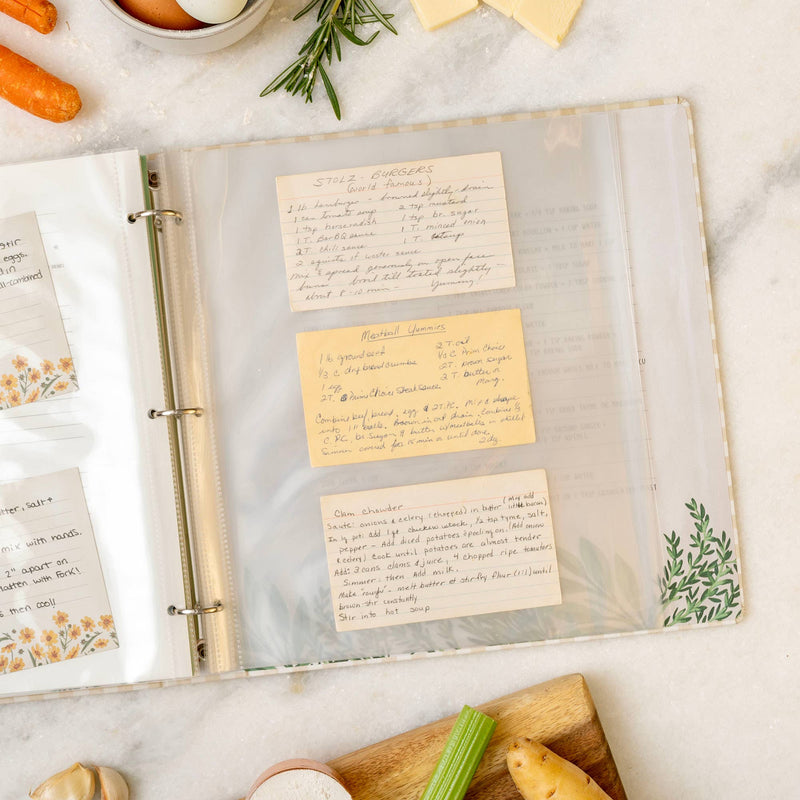 Stir
eggs.
d in
ll-combined
tter, salt +
mix with hands.
2" apart on
latten with fork!
s then cool!
STOLZ - BURGERS
(world famous)
1 lb hamburger - browned slightly - drain
1 can tomato soup 2 tsp mustard
1 tsp horseradish 1 tsp br. sugar
1 T. BarBQ sauce 1 T. minced onion
2 T. chili sauce 1 T.
2 squirts of worter sauce
Mix & spread generously on open face
buns broil till toasted slightly -
about 8-10 min - Yummy!
Meatball Yummies
1 lb ground beef 2 T. oil
1/3 C. dry bread crumbs 1/3 C. Prim Choice
1 egg 2T. brown sugar
2T. Prim Choice Steak Sauce 2 T. butter or
marg.
Combine beef, bread, egg & 2T. P.C. Mix & shape
into balls. Brown in oil drain. Combine
C. P.C. br. Sugar & butter w/meatballs in skillet
Simmer covered for 15 min or until done.
Clam Chowder (May add
Saute: onions & celery (chopped) in butter little bacon)
In lg pot: add 1 qt chicken stock, 1/2 tsp tyme, salt,
pepper - Add diced potatoes & peeling on. (Add onions
& celery) Cook until potatoes are almost tender
Add: 3 cans clams & juice, 4 chopped ripe tomatoes
Simmer: then Add milk.
Make "rough" - melt butter & stir fry flour (1:1) until
brown - stir constantly
Stir into hot soup